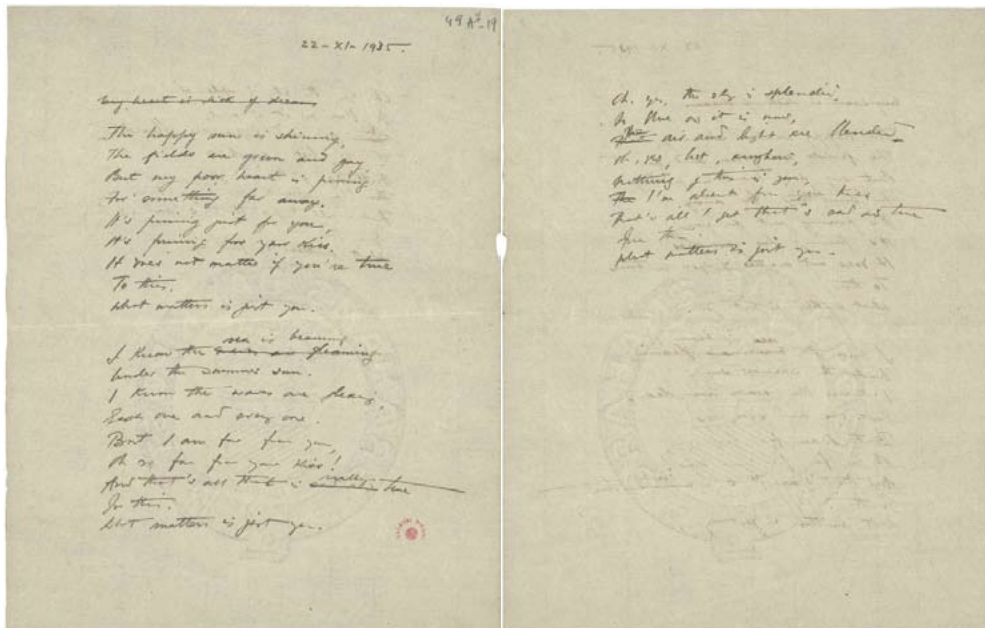 48 A³-19
22-XI-1935.
My heart is sick of dreams
The happy sun is shinning,
The fields are green and gay
But my poor heart is pining
For something far away.
It's pining just for you,
It's pining for your kiss.
It does not matter if you're true
To this.
What matters is just you.
sea is beaming
I know the waves are gleaming
Under the summer sun.
I know the waves are
Each one and every one.
But I am far from you,
Oh so far from your kiss!
really
And that's all that is true
In this.
What matters is just you.
Oh, yes, the sky is splendid,
So blue as it is now,
The air and light are blended
Oh, yes, but, anyhow,
Nothing of this is you,
I'm absent from your kiss
That's all I get that's and true
In this
What matters is just you.